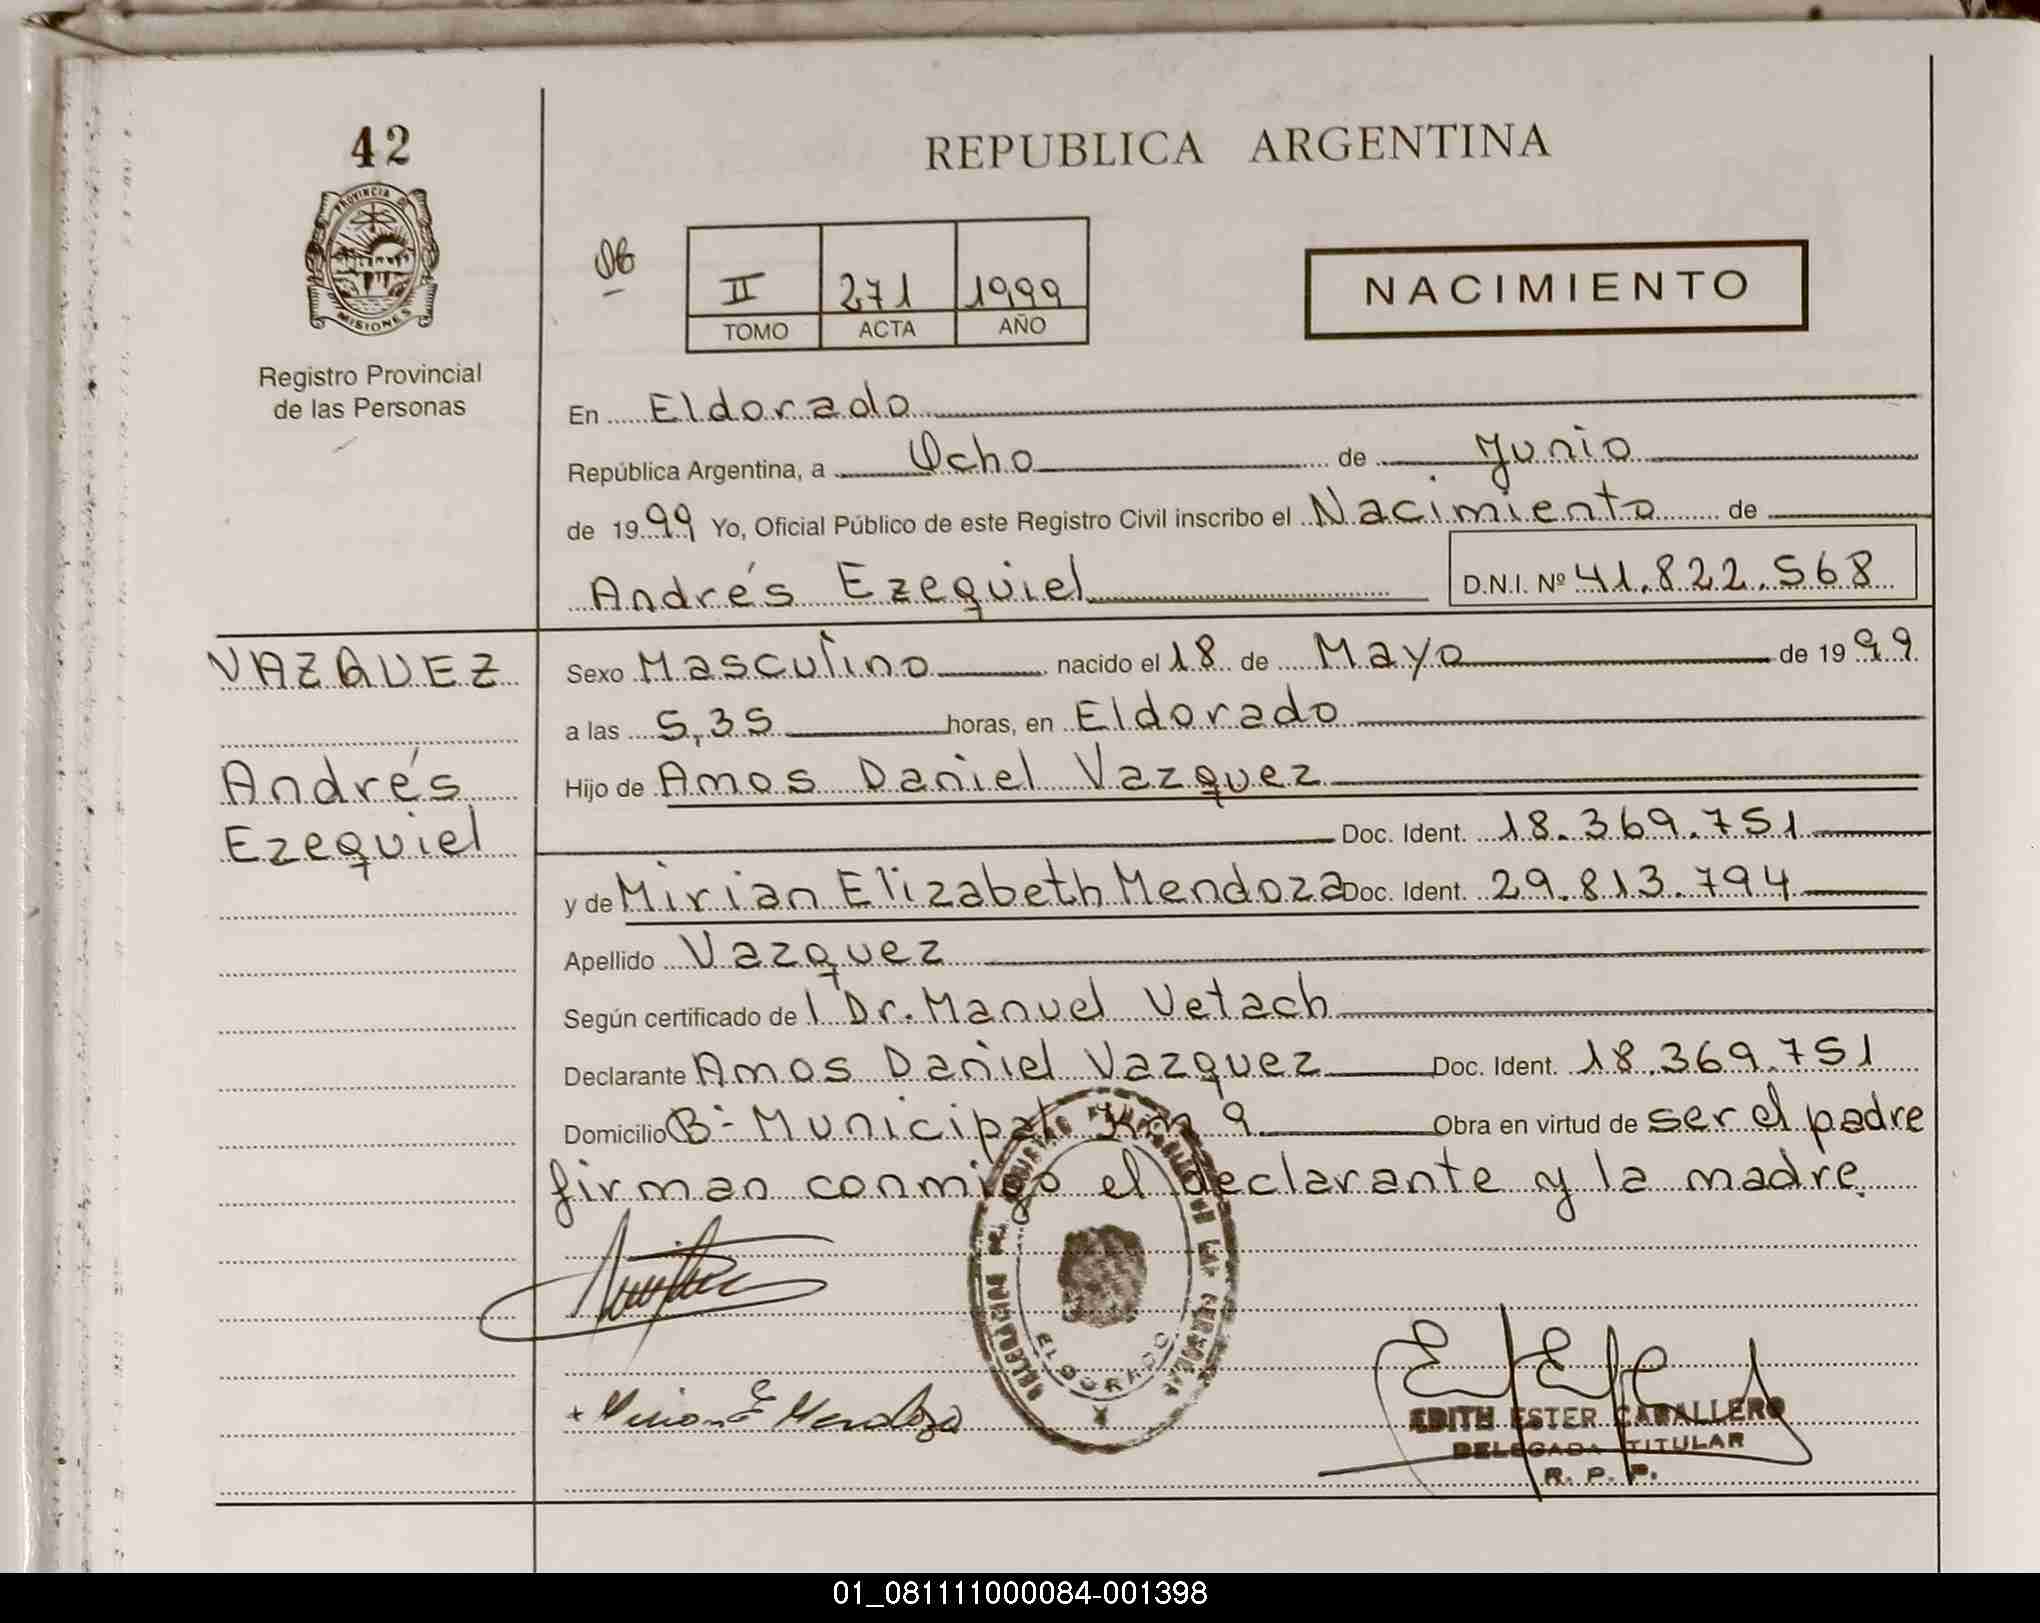 42
REPUBLICA ARGENTINA
PROVINCIA DE
MISIONES
Registro Provincial
de las Personas
II 271 1999
TOMO ACTA AÑO
NACIMIENTO
En Eldorado
República Argentina, a Ocho de Junio
de 1999 Yo, Oficial Público de este Registro Civil inscribo el Nacimiento de
Andrés Ezequiel D.N.I. Nº 41.822.568
VAZQUEZ
Andrés
Ezequiel
Sexo Masculino nacido el 18 de Mayo de 1999
a las 5,35 horas, en Eldorado
Hijo de Amos Daniel Vazquez
Doc. Ident. 18.369.751
y de Mirian Elizabeth Mendoza Doc. Ident. 29.813.794
Apellido Vazquez
Según certificado de l Dr. Manuel Vetach
Declarante Amos Daniel Vazquez Doc. Ident. 18.369.751
Domicilio B- Municipal Km 9 Obra en virtud de ser el padre
firman conmigo el declarante y la madre.
ELDORADO
Mirian E Mendoza
EDITH ESTER CABALLERO
DELEGADA TITULAR
R. P. P.
01_081111000084-001398